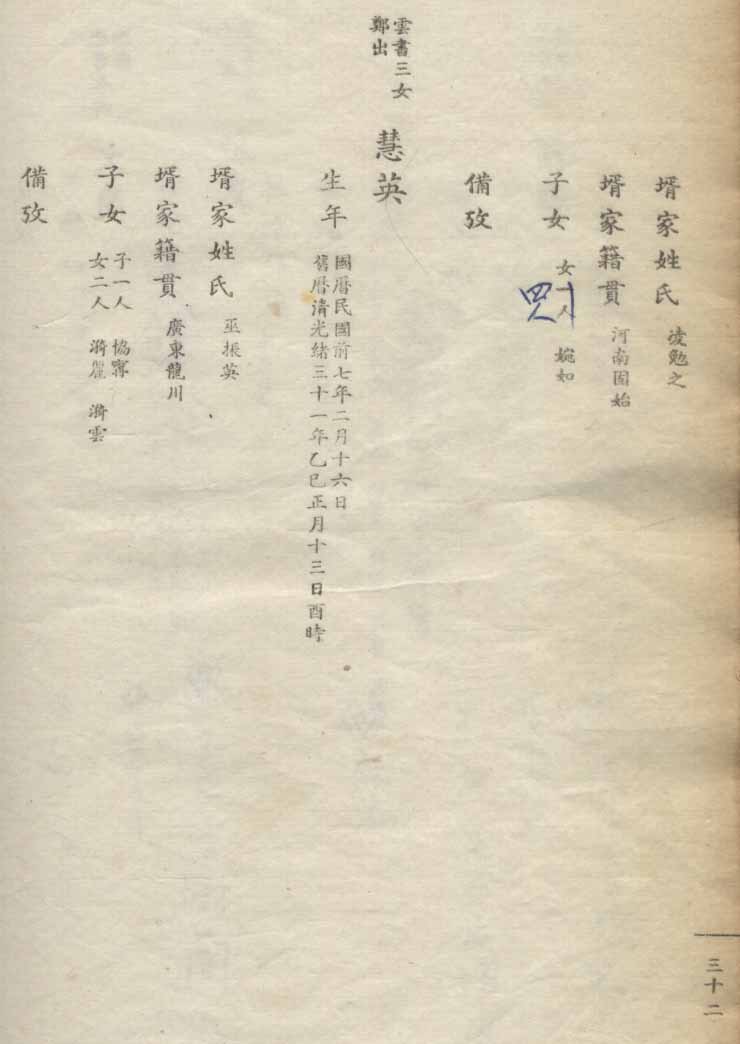 壻家姓氏 凌勉之
壻家籍貫 河南固始
子女 女一人 婉如
四人
備攷
雲書三女
鄭出
慧英
生年 國曆民國前七年二月十六日
舊曆清光緒三十一年乙巳正月十三日酉時
壻家姓氏 巫振英
壻家籍貫 廣東龍川
子女 子一人 協寧
女二人 漪麗 漪雲
備攷
三十二